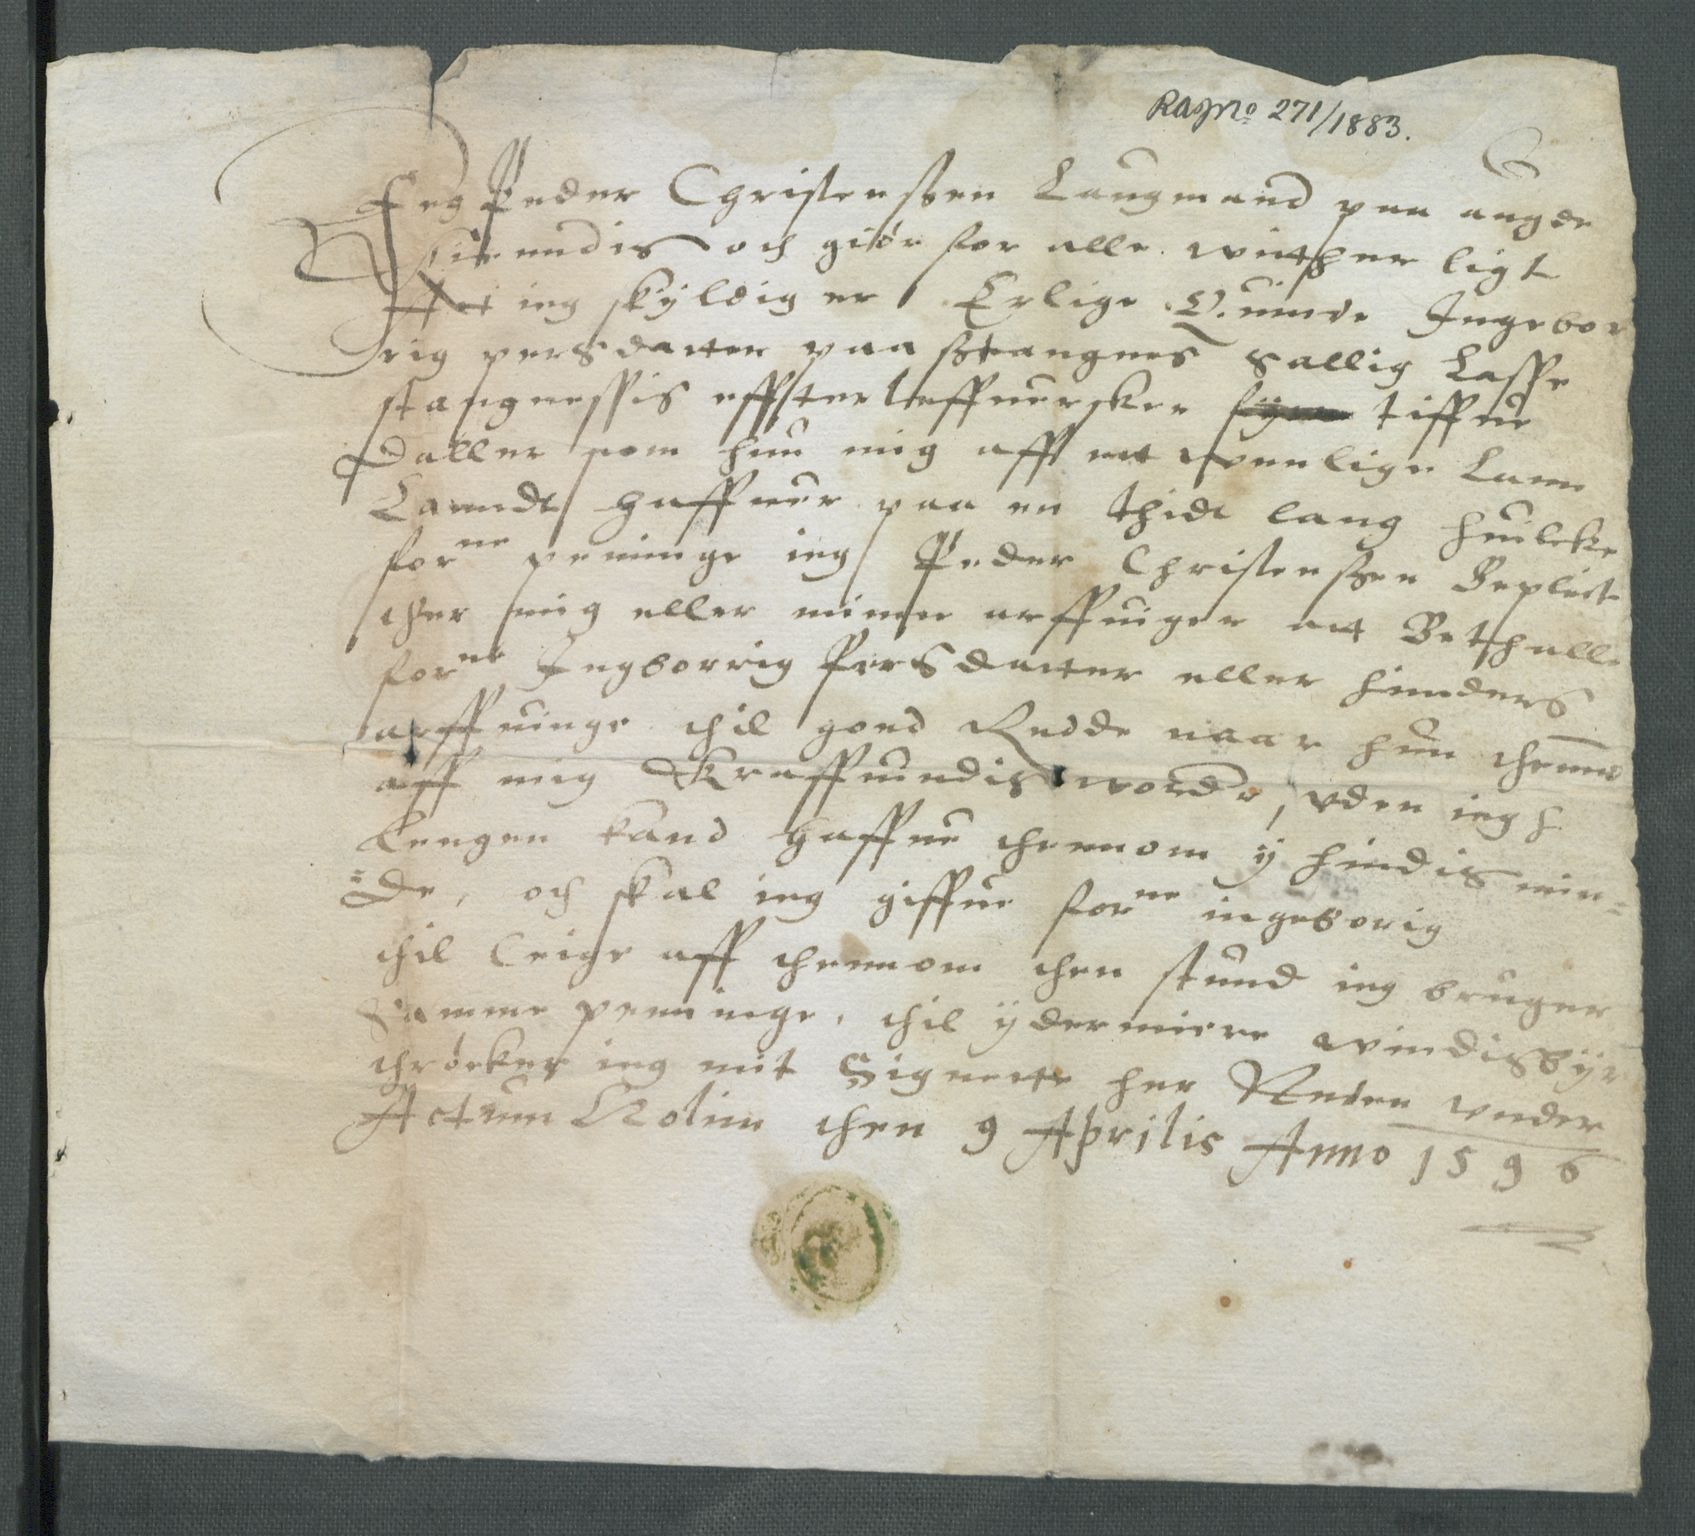 RAJNo 271/1883.
Jeg Peder Christenssen Laugmand paa augde
siide kiendis och giör for alle witther ligt
Att ieg skyldig er Erlige Quinde Ingebor
rig persdatter paa Stangnes Sallig Lasse
stangnessis effterleffuerske tiffue
daller som hun mig aff ett wenlige Lann
Laandt haffuer paa en thidt lang huilcke
forne peninge ieg Peder Christenssen Beplict
ther mig eller minne arffuiger att Bethalle
forne Ingborrig Persdatter eller hinders
arffuinge thil goed Rede naar hun thennom
aff mig Kreffuindis worder, vden ieg
Lenger kand haffue thennom y hindis min=
=de, och skal ieg giffue forne ingeborig
thil Leige aff thennom then stund ieg bruger
Samme penninge, thil ydermiere windisbyr
thröcker ieg mit Signette her Neden vnder
Actum Holim then 9 Aprilis Anno 1596